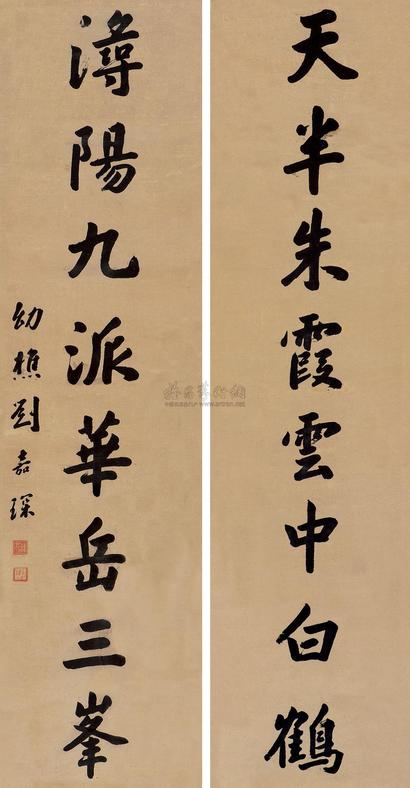 天半朱霞雲中白鶴
潯陽九派華岳三峯
幼樵劉嘉琛